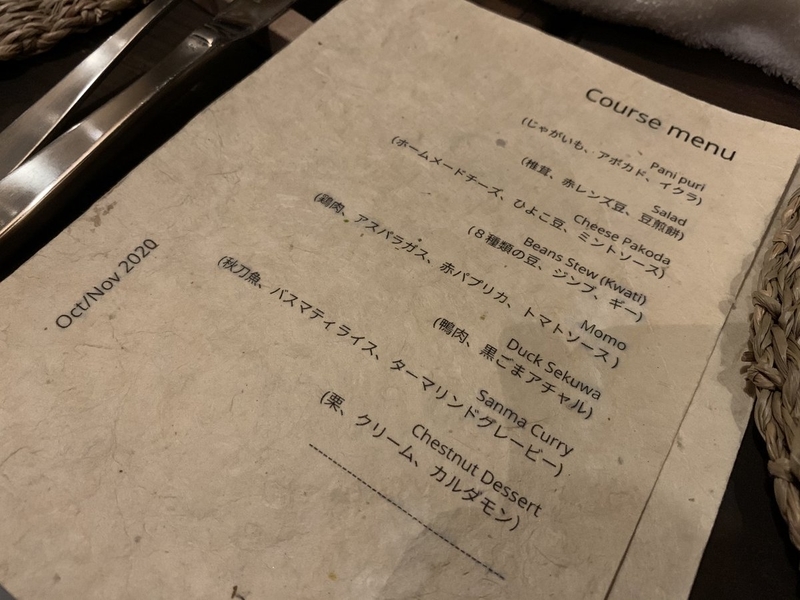 Course menu
Pani puri
(じゃがいも、アボカド、イクラ)
Salad
(椎茸、赤レンズ豆、豆煎餅)
Cheese Pakoda
(ホームメードチーズ、ひよこ豆、ミントソース)
Beans Stew (Kwati)
(8種類の豆、ジンブ、ギー)
Momo
(鶏肉、アスパラガス、赤パプリカ、トマトソース)
Duck Sekuwa
(鴨肉、黒ごまアチャル)
Sanma Curry
(秋刀魚、バスマティライス、ターマリンドグレービー)
Chestnut Dessert
(栗、クリーム、カルダモン)
Oct/Nov 2020